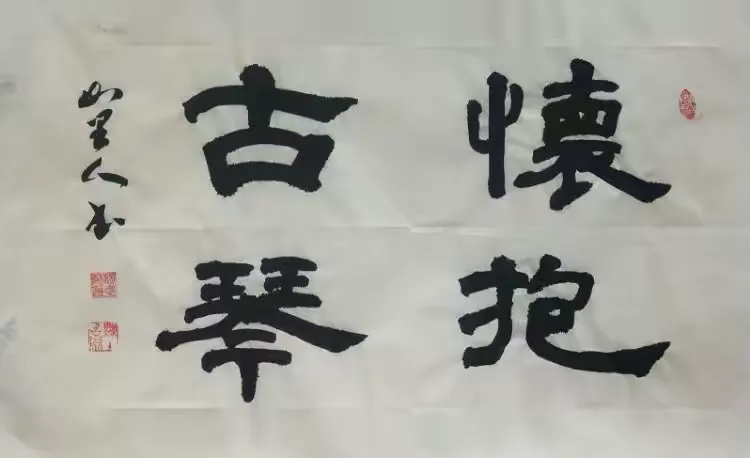 懷抱
古琴
山里人书